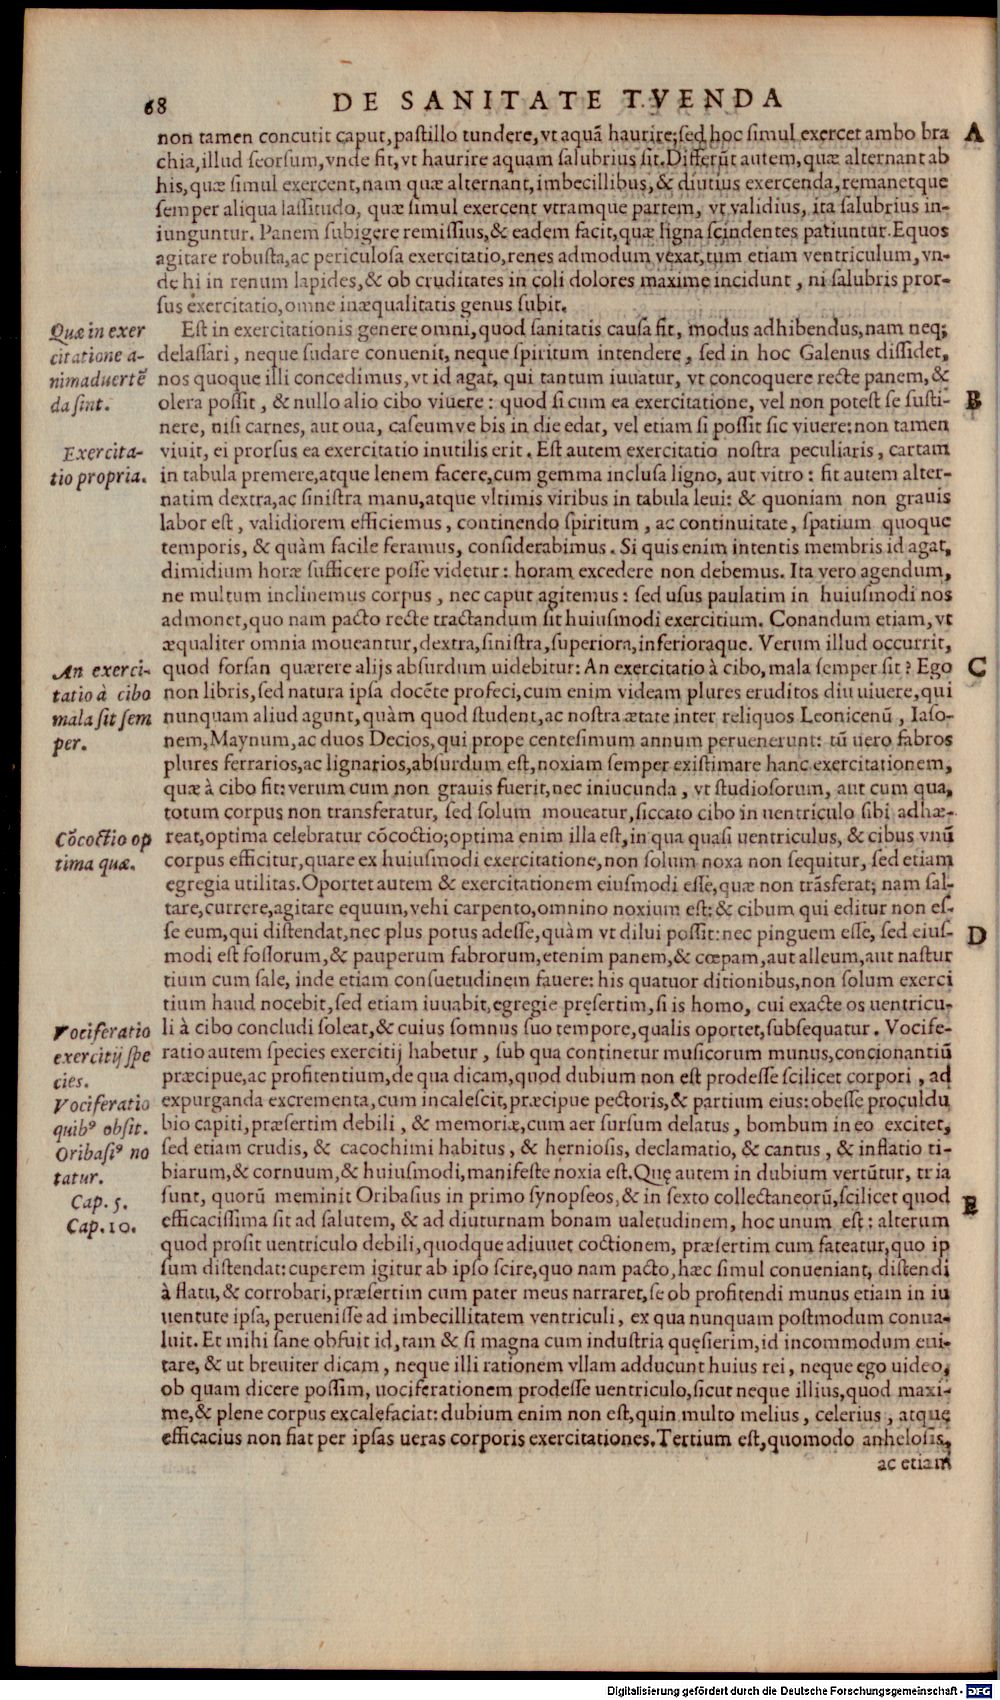 68
DE SANITATE TVENDA
non tamen concutit caput, pastillo tundere, vt aquã haurire; sed hoc simul exercet ambo bra
chia, illud seorsum, vnde fit, vt haurire aquam salubrius sit. Differũt autem, quæ alternant ab
his, quæ simul exercent, nam quæ alternant, imbecillibus, & diutius exercenda, remanetque
semper aliqua lassitudo, quæ simul exercent vtramque partem, vt validius, ita salubrius in-
iunguntur. Panem subigere remissius, & eadem facit, quæ ligna scindentes patiuntur. Equos
agitare robusta, ac periculosa exercitatio, renes admodum vexat, tum etiam ventriculum, vn-
de hi in renum lapides, & ob cruditates in coli dolores maxime incidunt, ni salubris pror-
sus exercitatio, omne inæqualitatis genus subit.
Est in exercitationis genere omni, quod sanitatis causa fit, modus adhibendus, nam neq;
delassari, neque sudare conuenit, neque spiritum intendere, sed in hoc Galenus dissidet,
nos quoque illi concedimus, vt id agat, qui tantum iuuatur, vt concoquere recte panem, &
olera possit, & nullo alio cibo viuere: quod si cum ea exercitatione, vel non potest se susti-
nere, nisi carnes, aut oua, caseumve bis in die edat, vel etiam si possit sic viuere: non tamen
viuit, ei prorsus ea exercitatio inutilis erit. Est autem exercitatio nostra peculiaris, cartam
in tabula premere, atque lenem facere, cum gemma inclusa ligno, aut vitro: fit autem alter-
natim dextra, ac sinistra manu, atque vltimis viribus in tabula leui: & quoniam non grauis
labor est, validiorem efficiemus, continendo spiritum, ac continuitate, spatium quoque
temporis, & quàm facile feramus, considerabimus. Si quis enim intentis membris id agat,
dimidium horæ sufficere posse videtur: horam excedere non debemus. Ita vero agendum,
ne multum inclinemus corpus, nec caput agitemus: sed usus paulatim in huiusmodi nos
admonet, quo nam pacto recte tractandum sit huiusmodi exercitium. Conandum etiam, vt
æqualiter omnia moueantur, dextra, sinistra, superiora, inferioraque. Verum illud occurrit,
quod forsan quærere alijs absurdum uidebitur: An exercitatio à cibo, mala semper sit? Ego
non libris, sed natura ipsa docẽte profeci, cum enim videam plures eruditos diu uiuere, qui
nunquam aliud agunt, quàm quod student, ac nostra ætate inter reliquos Leonicenũ, Iaso-
nem, Maynum, ac duos Decios, qui prope centesimum annum peruenerunt: tũ uero fabros
plures ferrarios, ac lignarios, absurdum est, noxiam semper existimare hanc exercitationem,
quæ à cibo fit: verum cum non grauis fuerit, nec iniucunda, vt studiosorum, aut cum qua,
totum corpus non transferatur, sed solum moueatur, siccato cibo in uentriculo sibi adhæ-
reat, optima celebratur cõcoctio; optima enim illa est, in qua quasi uentriculus, & cibus vnũ
corpus efficitur, quare ex huiusmodi exercitatione, non solum noxa non sequitur, sed etiam
egregia utilitas. Oportet autem & exercitationem eiusmodi esse, quæ non trãsferat; nam sal-
tare, currere, agitare equum, vehi carpento, omnino noxium est: & cibum qui editur non es-
se eum, qui distendat, nec plus potus adesse, quàm vt dilui possit: nec pinguem esse, sed eius-
modi est fossorum, & pauperum fabrorum, etenim panem, & cœpam, aut alleum, aut nastur
tium cum sale, inde etiam consuetudinem fauere: his quatuor ditionibus, non solum exerci
tium haud nocebit, sed etiam iuuabit, egregie pręsertim, si is homo, cui exacte os uentricu-
li à cibo concludi soleat, & cuius somnus suo tempore, qualis oportet, subsequatur. Vocife-
ratio autem species exercitij habetur, sub qua continetur musicorum munus, concionantiũ
præcipue, ac profitentium, de qua dicam, quod dubium non est prodesse scilicet corpori, ad
expurganda excrementa, cum incalescit, præcipue pectoris, & partium eius: obesse proculdu
bio capiti, præsertim debili, & memoriæ, cum aer sursum delatus, bombum in eo excitet,
sed etiam crudis, & cacochimi habitus, & herniosis, declamatio, & cantus, & inflatio ti-
biarum, & cornuum, & huiusmodi, manifeste noxia est. Quę autem in dubium vertũtur, tria
sunt, quorũ meminit Oribasius in primo synopseos, & in sexto collectaneorũ, scilicet quod
efficacissima sit ad salutem, & ad diuturnam bonam ualetudinem, hoc unum est: alterum
quod prosit uentriculo debili, quodque adiuuet coctionem, præsertim cum fateatur, quo ip
sum distendat: cuperem igitur ab ipso scire, quo nam pacto, hæc simul conueniant, distendi
à flatu, & corrobari, præsertim cum pater meus narraret, se ob profitendi munus etiam in iu
uentute ipsa, peruenisse ad imbecillitatem ventriculi, ex qua nunquam postmodum conua-
luit. Et mihi sane obfuit id, tam & si magna cum industria quęsierim, id incommodum eui-
tare, & ut breuiter dicam, neque illi rationem vllam adducunt huius rei, neque ego uideo,
ob quam dicere possim, uociferationem prodesse uentriculo, sicut neque illius, quod maxi-
me, & plene corpus excalefaciat: dubium enim non est, quin multo melius, celerius, atque
efficacius non fiat per ipsas ueras corporis exercitationes. Tertium est, quomodo anhelosis,
ac etiam
Quæ in exer
citatione a-
nimaduertẽ
da sint.
Exercita-
tio propria.
An exerci-
tatio à cibo
mala sit sem
per.
Cõcoctio op
tima quæ.
Vociferatio
exercitij spe
cies.
Vociferatio
quibꝰ obsit.
Oribasiꝰ no
tatur.
Cap. 5.
Cap. 10.
A
B
C
D
E
Digitalisierung gefördert durch die Deutsche Forschungsgemeinschaft - DFG